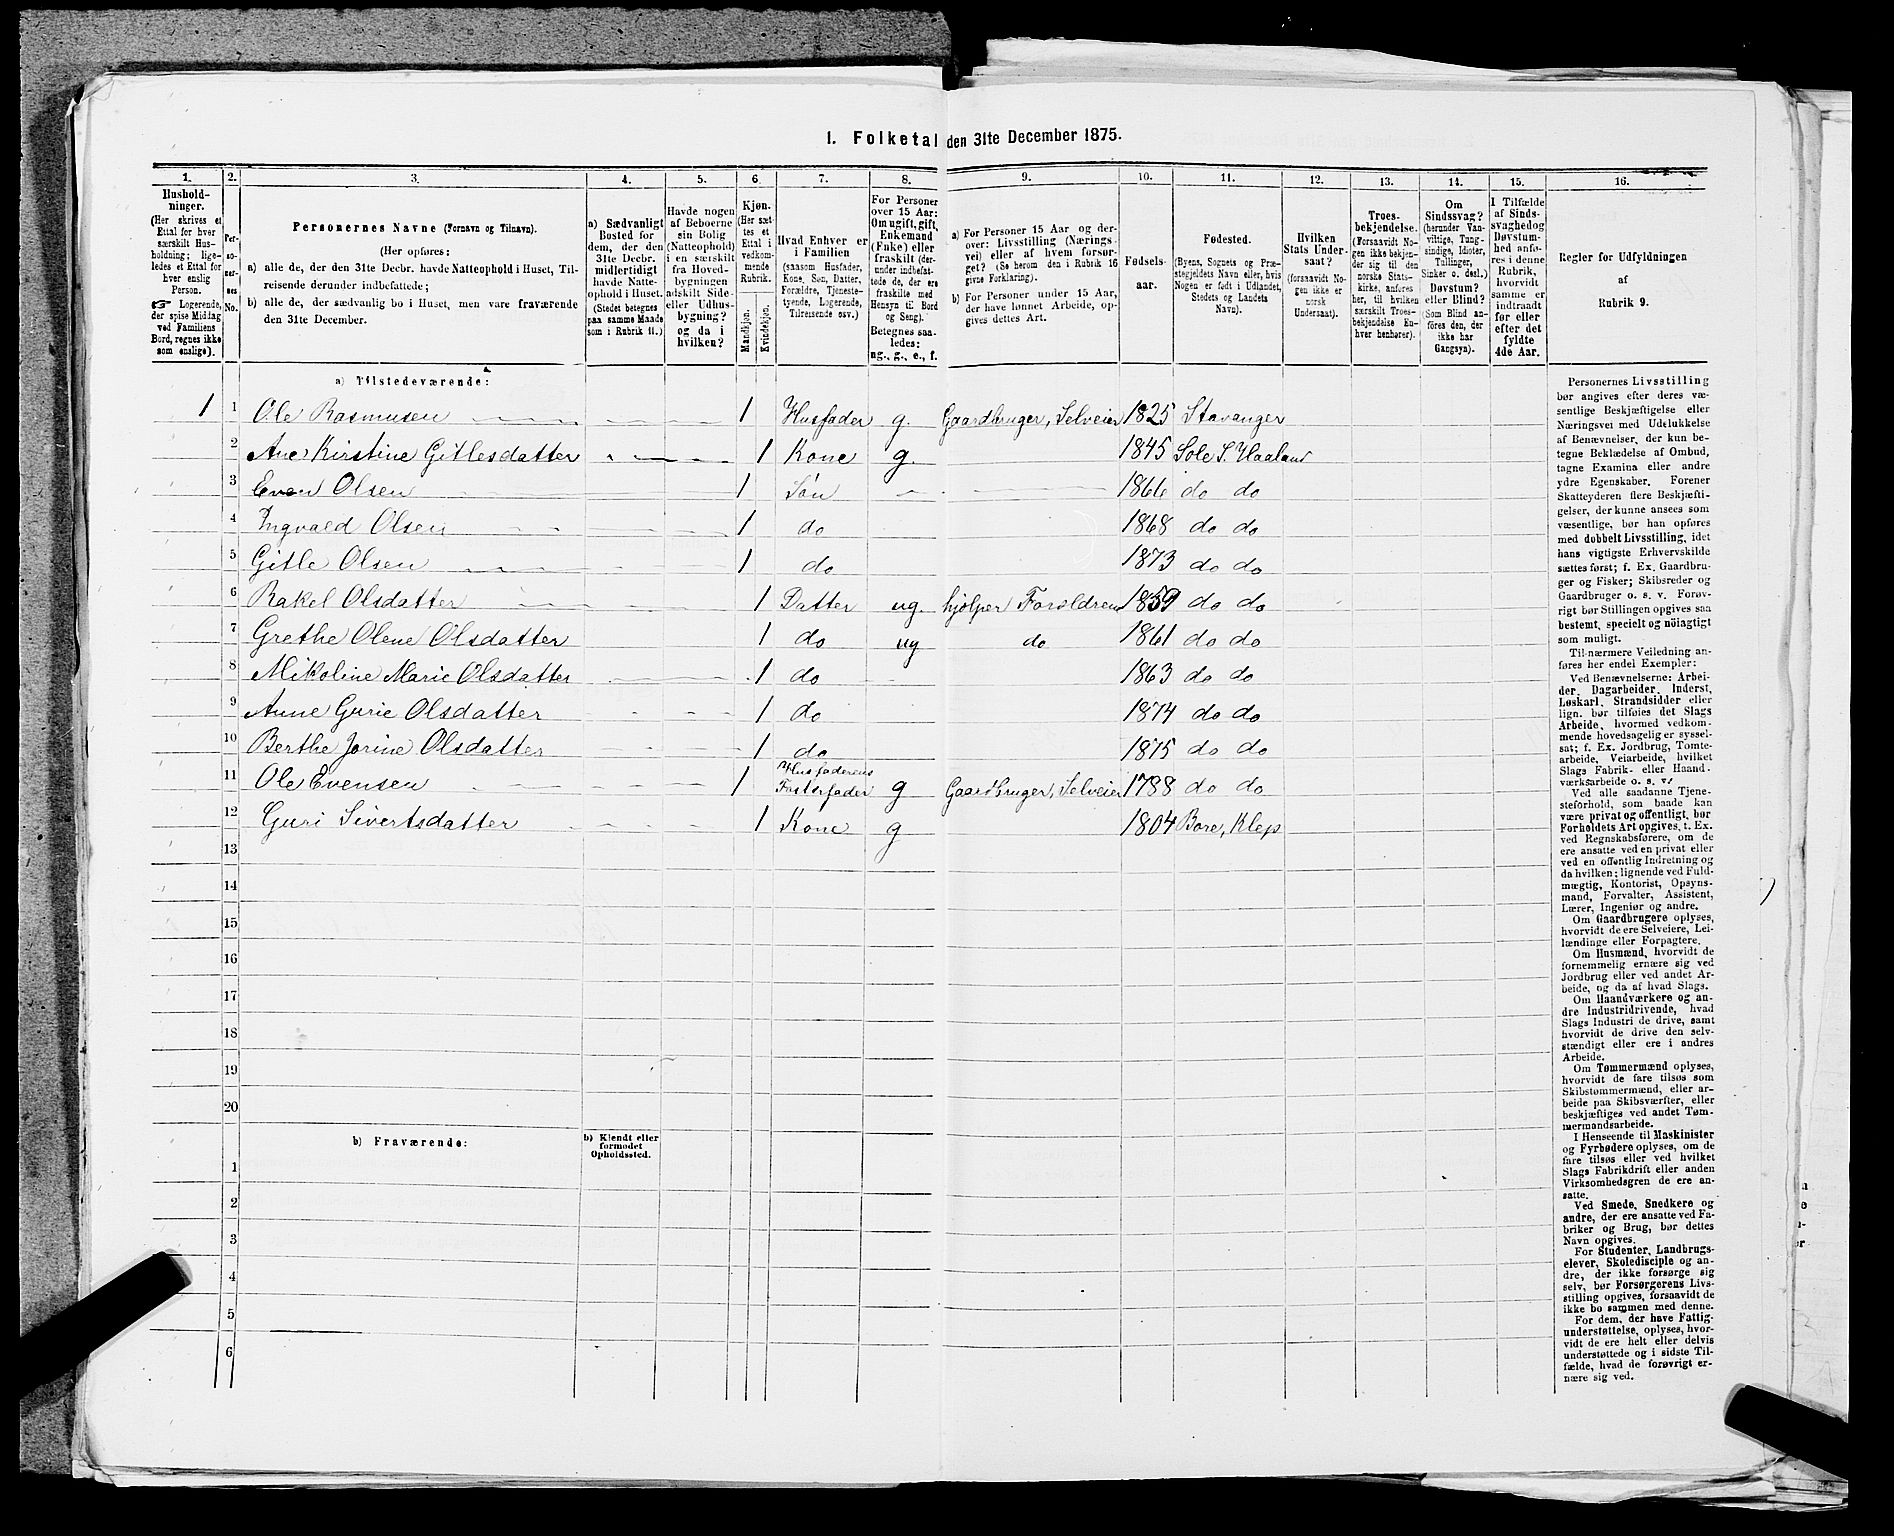 1. Folketal den 31te December 1875.
1. 2. 3. 4. 5. 6. 7. 8. 9. 10. 11. 12. 13. 14. 15. 16.
Hushold-
ninger.
(Her skrives et
Ettal for hver
særskilt Hus-
holdning; lige-
ledes et Ettal for
hver enslig
Person.
☞ Logerende,
der spise Middag
ved Familiens
Bord, regnes ikke
som enslige).
Per-
so-
ner-
nes
No.
Personernes Navne (Fornavn og Tilnavn).
(Her opføres:
a) alle de, der den 31te Decbr. havde Natteophold i Huset, Til-
reisende derunder indbefattede;
b) alle de, der sædvanlig bo i Huset, men vare fraværende
den 31te December.
a) Sædvanligt
Bosted for
dem, der den
31te Decbr.
midlertidigt
havde Natte-
ophold i Huset.
(Stedet betegnes
paa samme Maade
som i Rubrik 11.)
Havde nogen
af Beboerne
sin Bolig
(Natteophold)
i en særskilt
fra Hoved-
bygningen
adskilt Side-
eller Udhus-
bygning?
og da i
hvilken?
Kjøn.
(Her sæt-
tes et
Ettal i
vedkom-
mende
Rubrik.
Mandkjøn.
Kvindekjøn.
Hvad Enhver er
i Familien
(saasom Husfader,
Kone, Søn, Datter,
Forældre, Tjeneste-
tyende, Logerende,
Tilreisende osv.)
For Personer
over 15 Aar:
Om ugift, gift,
Enkemand
(Enke) eller
fraskilt (der-
under indbefat-
tede de, der ere
fraskilte med
Hensyn til Bord
og Seng).
Betegnes saa-
ledes:
ug., g., e., f.
a) For Personer 15 Aar og der-
over: Livsstilling (Nærings-
vei) eller af hvem forsør-
get? (Se herom den i Rubrik 16
givne Forklaring).
b) For Personer under 15 Aar,
der have lønnet Arbeide, op-
gives dettes Art.
Fødsels-
aar.
Fødested.
(Byens, Sognets og Præ-
stegjeldets Navn eller, hvis
Nogen er født i Udlandet,
Stedets og Landets
Navn).
Hvilken
Stats Under-
saat?
(forsaavidt No-
gen ikke er
norsk
Undersaat).
Troes-
bekjendelse.
(Forsaavidt No-
gen ikke bekjen-
der sig til den
norske Stats-
kirke, anføres
her, til hvilken
særskilt Troes-
bekjendelse En-
hver henhører).
Om
Sindssvag?
(herunder Van-
vittige, Tung-
sindige, Idioter,
Tullinger,
Sinker o. desl.)
Døvstum?
eller Blind?
(Som Blind an-
føres den, der
ikke har
Gangsyn).
I Tilfælde
af Sinds-
svaghed og
Døvstum-
hed anfø-
res i denne
Rubrik,
hvorvidt
samme er
indtraadt
før eller
efter det
fyldte
4de Aar.
Regler for Udfyldningen
af
Rubrik 9.
a) Tilstedeværende:
1 1 Ole Rasmusen 1 Husfader g. Gaardbruger, Selveier 1825 Stavanger
2 Ane Kirstine Gitlesdatter 1 Kone g. 1845 Sole S. Haaland
3 Even Olsen 1 Søn 1866 do do
4 Ingvald Olsen 1 do 1868 do do
5 Gitle Olsen 1 do 1873 do do
6 Rakel Olsdatter 1 Datter ug. hjelper Forældrene 1859 do do
7 Grethe Olene Olsdatter 1 do ug do 1861 do do
8 Mikoline Marie Olsdatter 1 do 1863 do do
9 Anne Gurie Olsdatter 1 do 1874 do do
10 Berthe Jorine Olsdatter 1 do 1875 do do
11 Ole Evensen 1 Husfaderens Fosterfader g Gaardbruger, Selveier 1788 do do
12 Guri Sivertsdatter 1 Kone g 1804 Bore, Klep
13
14
15
16
17
18
19
20
b) Fraværende:
b) Kjendt eller
formodet
Opholdssted.
1
2
3
4
5
6
Personernes Livsstilling
bør angives efter deres væ-
sentlige Beskjæftigelse eller
Næringsvei med Udelukkelse
af Benævnelser, der kun be-
tegne Beklædelse af Ombud,
tagne Examina eller andre
ydre Egenskaber. Forener
Skatteyderen flere Beskjæfti-
gelser, der kunne ansees som
væsentlige, bør han opføres
med dobbelt Livsstilling, idet
hans vigtigste Erhvervskilde
sættes først; f. Ex. Gaardbru-
ger og Fisker; Skibsreder og
Gaardbruger o. s. v. Forøv-
rigt bør Stillingen opgives saa
bestemt, specielt og nöiagtigt
som muligt.
Til nærmere Veiledning an-
føres her endel Exempler:
Ved Benævnelserne: Arbei-
der, Dagarbeider, Inderst,
Løskarl, Strandsidder eller
lign. bør tilføies det Slags
Arbeide, hvormed vedkom-
mende hovedsagelig er syssel-
sat; f. Ex. Jordbrug, Tomte-
arbeide, Veiarbeide, hvilket
Slags Fabrik- eller Haand-
værksarbeide o. s. v.
Ved alle saadanne Tjene-
steforhold, som baade kan
være privat og offentligt, bør
Forholdets Art opgives, t. Ex.
ved Regnskabsførere, om de
ere ansatte ved en privat eller
ved en offentlig Indretning og
da hvilken; lignende ved Fuld-
mægtig, Kontorist, Opsyns-
mand, Forvalter, Assistent,
Lærer, Ingeniør og andre.
Om Gaardbrugere oplyses,
hvorvidt de ere Selveiere, Lei-
lændinge eller Forpagtere.
Om Husmænd, hvorvidt de
fornemmelig ernære sig ved
Jordbrug eller ved andet Ar-
beide, og da af hvad Slags.
Om Haandværkere og an-
dre Industridrivende, hvad
Slags Industri de drive, samt
hvorvidt de drive den selv-
stændigt eller ere i andres
Arbeide.
Om Tømmermænd oplyses,
hvorvidt de fare tilsøs som
Skibstømmermænd, eller ar-
beide paa Skibsværfter, eller
beskjæftiges ved andet Tøm-
mermandsarbeide.
I Henseende til Maskinister
og Fyrbødere oplyses, om de
fare tilsøs eller ved hvilket
Slags Fabrikdrift eller anden
Virksomhedsgren de ere an-
satte.
Ved Smede, Snedkere og
andre, der ere ansatte ved Fa-
briker og Brug, bør dettes
Navn opgives.
For Studenter, Landbrugs-
elever, Skoledisciple og an-
dre, der ikke forsørge sig
selv, bør Forsørgerens Livs-
stilling opgives, forsaavidt de
ikke bo sammen med denne.
For dem, der have Fattig-
understøttelse, oplyses, hvor-
vidt de ere helt eller delvis
understøttede og i sidste Til-
fælde, hvad de forøvrigt er-
nære sig ved.